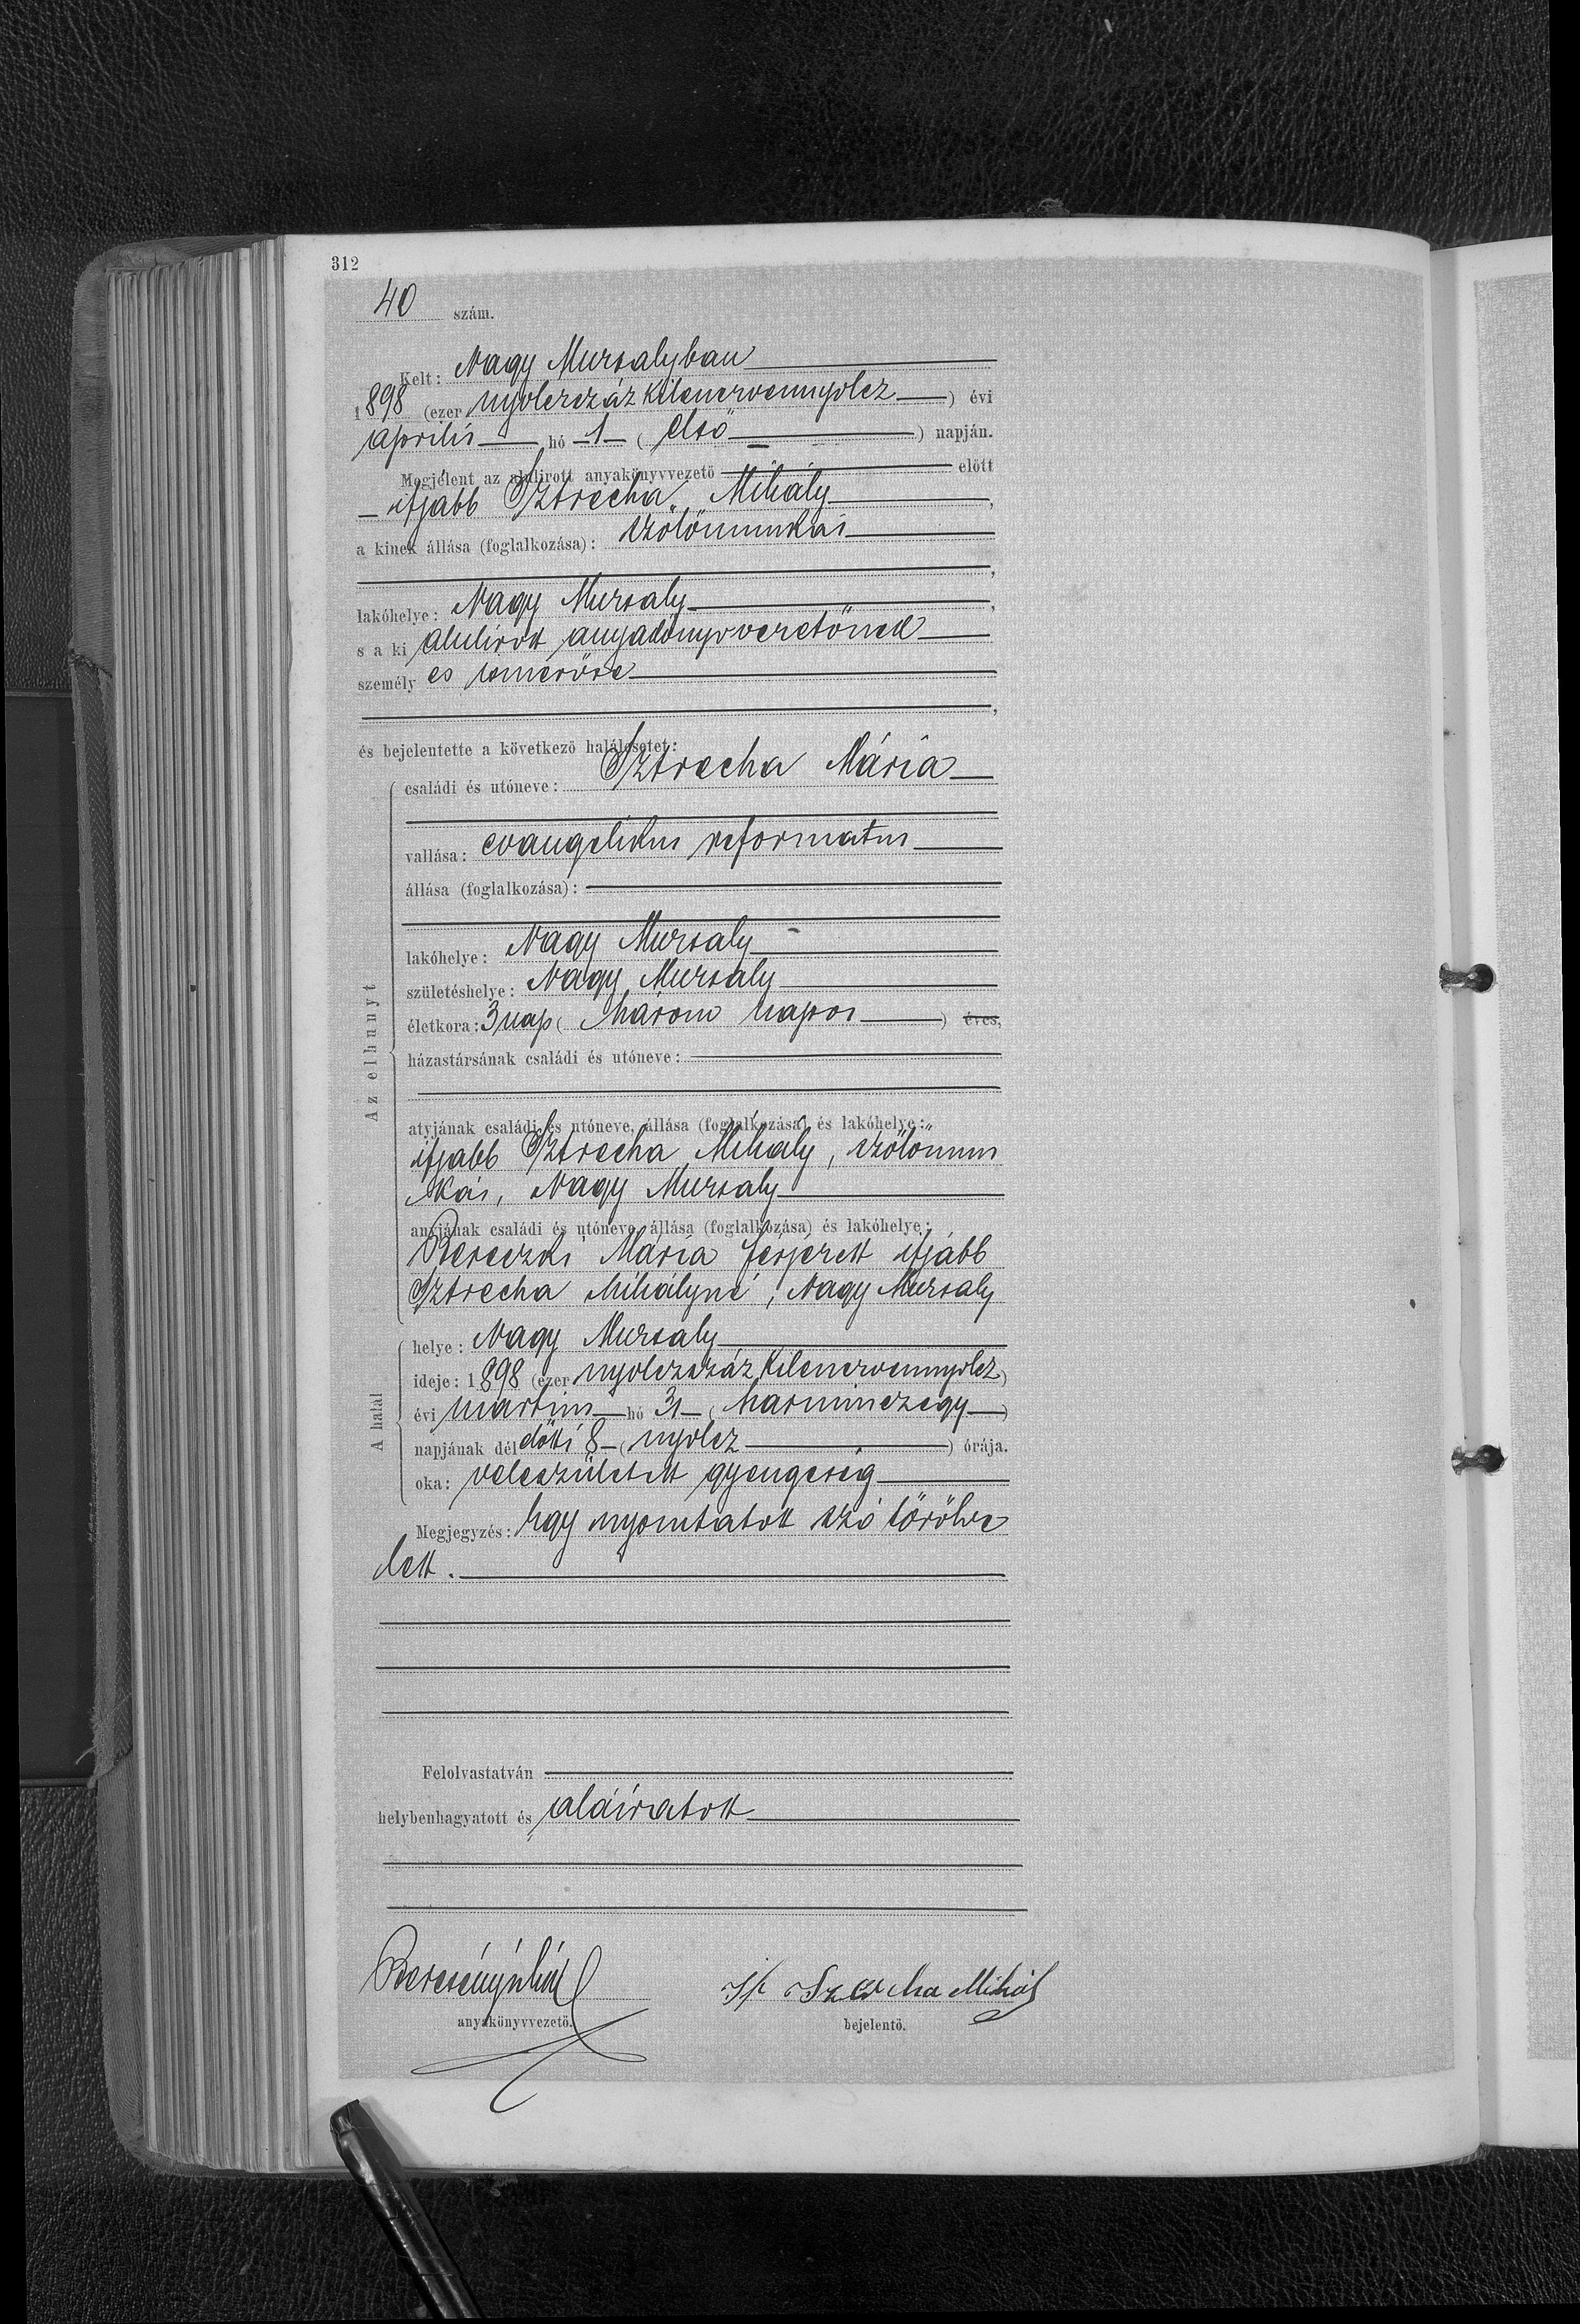 312
40 szám.
Kelt: Nagy Muzsalyban
1898 (ezer nyolczszáz kilenczvennyolcz) évi
április hó 1 (első) napján.
Megjelent az alulirott anyakönyvvezető előtt
ifjabb Sztrecha Mihály,
a kinek állása (foglalkozása): szőlőmunkás
lakóhelye: Nagy Muzsaly,
s a ki alulirott anyakönyvvezetőnek
személy es ismerőse
és bejelentette a következő halálesetet:
családi és utóneve: Sztrecha Mária
vallása: evangelikus reformatus
állása (foglalkozása):
lakóhelye: Nagy Muzsaly
születéshelye: Nagy Muzsaly
életkora: 3 nap (három napos) éves,
házastársának családi és utóneve:
Az elhunyt
atyjának családi és utóneve, állása (foglalkozása) és lakóhelye:
ifjabb Sztrecha Mihály, szőlőmun
kás, Nagy Muzsaly
anyjának családi és utóneve, állása (foglalkozása) és lakóhelye:
Bereczki Mária férjezett ifjabb
Sztrecha Mihályné, Nagy Muzsaly
A halál
helye: Nagy Muzsaly
ideje: 1898 (ezer nyolczszáz kilenczvennyolcz)
évi martius hó 31 (harminczegy)
napjának dél előtti 8 (nyolcz) órája.
oka: veleszületett gyengeség
Megjegyzés: Egy nyomtatott szó törölve
lett.
Felolvastatván
helybenhagyatott és aláíratott
Ifj Mihály
anyakönyvvezető. bejelentő.